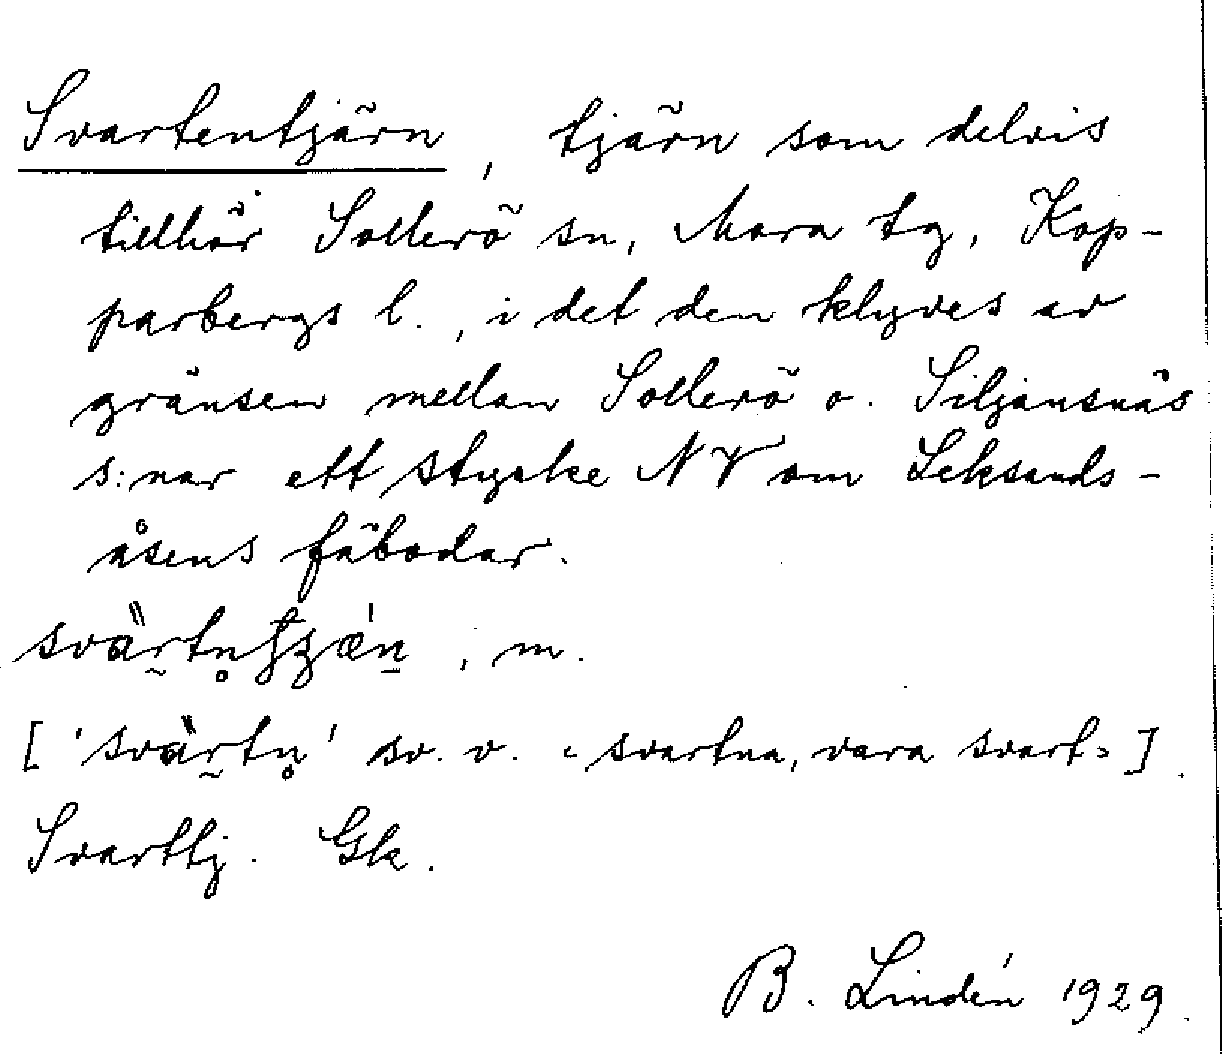 Svartentjärn, tjärn som delvis
tillhör Sollerö sn, Mora tg, Kop-
parbergs l., i det den klyves av
gränsen mellan Sollerö o. Siljansnäs
s:nar ett stycke NV om Leksands-
åsens fäbodar.
, m.
sv. v. "svartna, vara svart"].
Svarttj. Gk.
B. Lindén 1929.